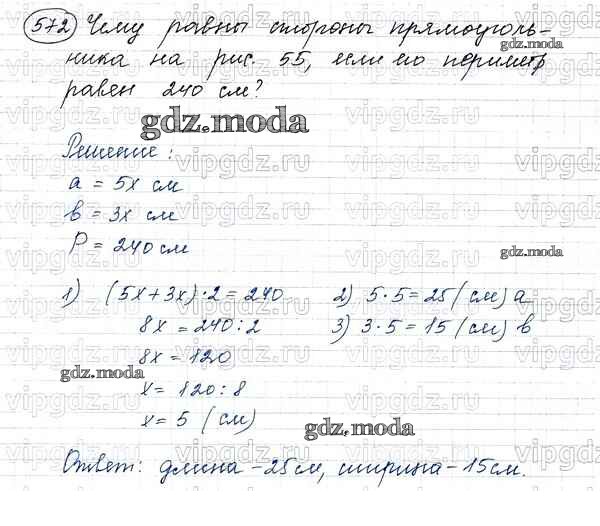 572 Чему равны стороны прямоуголь-
ника на рис. 55, если его периметр
равен 240 см?
gdz.moda
gdz.moda
Решение:
a = 5x см
в = 3x см
P = 240 см
gdz.moda
1) (5x+3x)·2=240
8x = 240:2
8x = 120
x = 120:8
x = 5 (см)
2) 5·5=25 (см) a
3) 3·5=15 (см) в
gdz.moda
gdz.moda
Ответ: длина -25см, ширина -15см.
vipgdz.ru vipgdz.ru vipgdz.ru